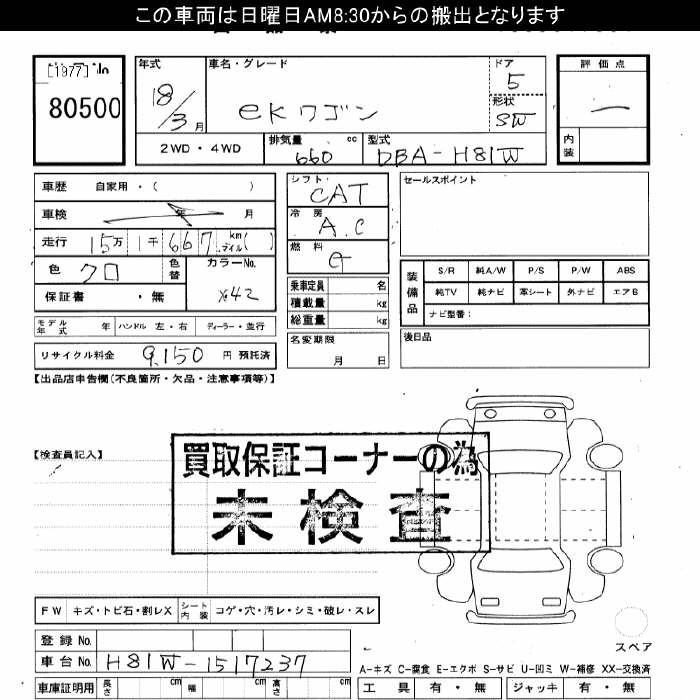 この車両は日曜日AM8:30からの搬出となります
[1977]No
80500
年式 車名・グレード ドア 評価点
18/3月 eKワゴン 5
形状 SW
2WD・4WD 排気量 660 cc 型式 DBA-H81W
内装
車歴 自家用・( )
車検 年 月
走行 15万 1千 667 km マイル( )
色 クロ 色替 カラーNo. X42
保証書 ・無
モデル年式 年 ハンドル 左・右 ディーラー・並行
リサイクル料金 9,150 円 預託済
シフト CAT
冷房 A.C
燃料 G
乗車定員 名
積載量 kg
総重量 kg
名変期限
月 日
セールスポイント
装備品 S/R 純A/W P/S P/W ABS
純TV 純ナビ 革シート 外ナビ エアB
ナビ型番:
後日品
【出品店申告欄(不良箇所・欠品・注意事項等)】
【検査員記入】
買取保証コーナーの為
未検査
FW キズ・トビ石・割レX シート内装 コゲ・穴・汚レ・シミ・破レ・スレ
スペア
登録No.
車台No. H81W-1517237
A-キズ C-腐食 E-エクボ S-サビ U-凹ミ W-補修 XX-交換済
車庫証明用 長さ cm 幅 cm 高さ cm
工具 有・無 ジャッキ 有・無